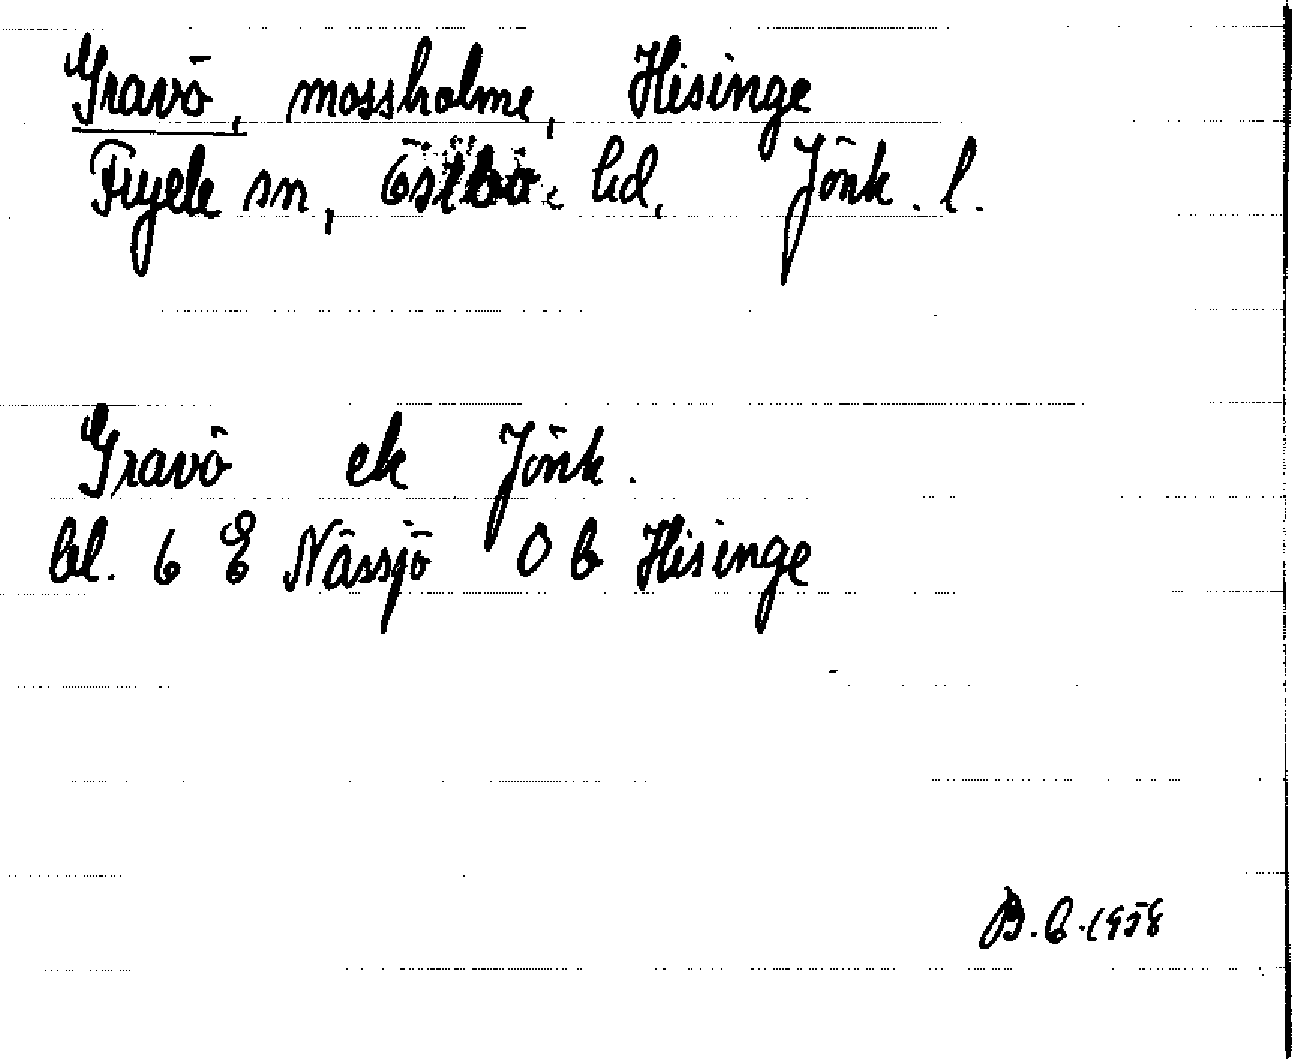 Gravö, mossholme, Hisinge
Fryele sn, Östbo hd, Jönk. l.
Gravö ek Jönk.
bl. 6 E Nässjö 0 b Hisinge
B. E. 1958